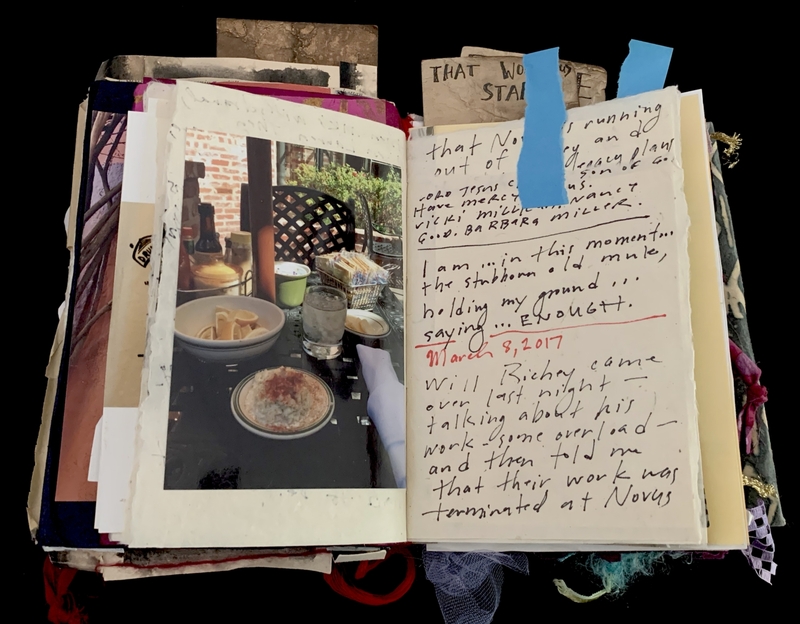 THAT
STA
that running
out of and
Have mercy
Vicki Nancy
God. BARBARA MILLER.
I am ... in this moment...
the stubborn old mule,
holding my ground ...
saying ... ENOUGH.
March 8, 2017
Will Richey came
over last night —
talking about his
work - some overload —
and then told me
that their work was
terminated at Novus